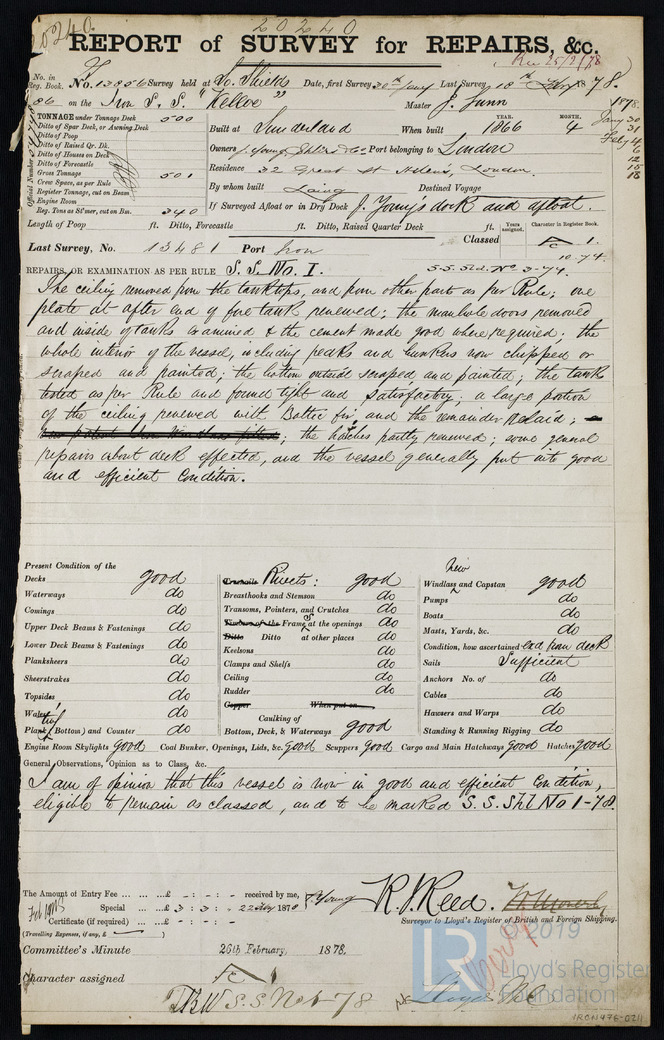 20240
REPORT of SURVEY for REPAIRS, &c.
Rec 25/2/78
No. in Reg. Book. No. 13856 Survey held at So. Shields Date, first Survey 30th Jany Last Survey 18th Feby 1878.
86 on the Iron S. S. "Kelloe" Master J. Gunn
1878.
Jany 30
31
Feby 4
6
12
15
18
TONNAGE under Tonnage Deck 500
Ditto of Spar Deck, or Awning Deck
Ditto of Poop
Ditto of Raised Qr. Dk.
Ditto of Houses on Deck
Ditto of Forecastle
Gross Tonnage 501
Crew Space, as per Rule
Register Tonnage, cut on Beam
Engine Room
Reg. Tons as St'mer, cut on Bm. 340
Official Number
Built at Sunderland When built YEAR. 1866 MONTH. 4
Owners J. Young Ehlers & Co. Port belonging to London
Residence 32 Great St Helens, London.
By whom built Laing Destined Voyage
If Surveyed Afloat or in Dry Dock J. Young's dock and afloat.
Length of Poop ft. Ditto, Forecastle ft. Ditto, Raised Quarter Deck ft.
Years assigned. Character in Register Book.
Last Survey, No. 13481 Port Iron Classed A 1.
10.74
REPAIRS, OR EXAMINATION AS PER RULE S. S. No. I. S.S. Sld. No 3-74.
The ceiling removed from the tanktops, and from other parts as per Rule; one
plate at after end of fore tank renewed; the manhole doors removed
and inside of tanks examined & the cement made good where required; the
whole interior of the vessel, including peaks and bunkers now chipped or
scraped and painted; the bottom outside scraped and painted; the tanks
tested as per Rule and found tight and satisfactory; a large portion
of the ceiling renewed with Baltic fir, and the remainder relaid;
; the hatches partly renewed; some general
repairs about deck effected, and the vessel generally put into good
and efficient condition.
Present Condition of the
Decks good
Waterways do
Comings do
Upper Deck Beams & Fastenings do
Lower Deck Beams & Fastenings do
Planksheers do
Sheerstrakes do
Topsides do
Wales do
Plating (Bottom) and Counter do
Treenails Rivets: good
Breasthooks and Stemson do
Transoms, Pointers, and Crutches do
Timbers of the Frames at the openings do
Ditto Ditto at other places do
Keelsons do
Clamps and Shelfs do
Ceiling do
Rudder do
Copper When put on
Caulking of
Bottom, Deck, & Waterways good
New
Windlass and Capstan good
Pumps do
Boats do
Masts, Yards, &c. do
Condition, how ascertained exd from deck
Sails Sufficient
Anchors No. of do
Cables do
Hawsers and Warps do
Standing & Running Rigging do
Engine Room Skylights good Coal Bunker, Openings, Lids, &c. good Scuppers good Cargo and Main Hatchways good Hatches good
General Observations, Opinion as to Class, &c.
I am of opinion that this vessel is now in good and efficient condition,
eligible to remain as classed, and to be marked S. S. Shl No 1-78.
The Amount of Entry Fee ... ... ... £ - : - : - received by me,
Special ... £ 3 : 3 : - 22 Feby 1878
Certificate (if required) ... £ - : - : -
(Travelling Expenses, if any, £ )
J. Young
R. J. Reed.
Surveyor to Lloyd's Register of British and Foreign Shipping.
Committee's Minute 26th February, 1878.
Character assigned A
TBW S. S. No 1-78
© 2019
LR
Lloyd's Register
Foundation
IRON476-0211